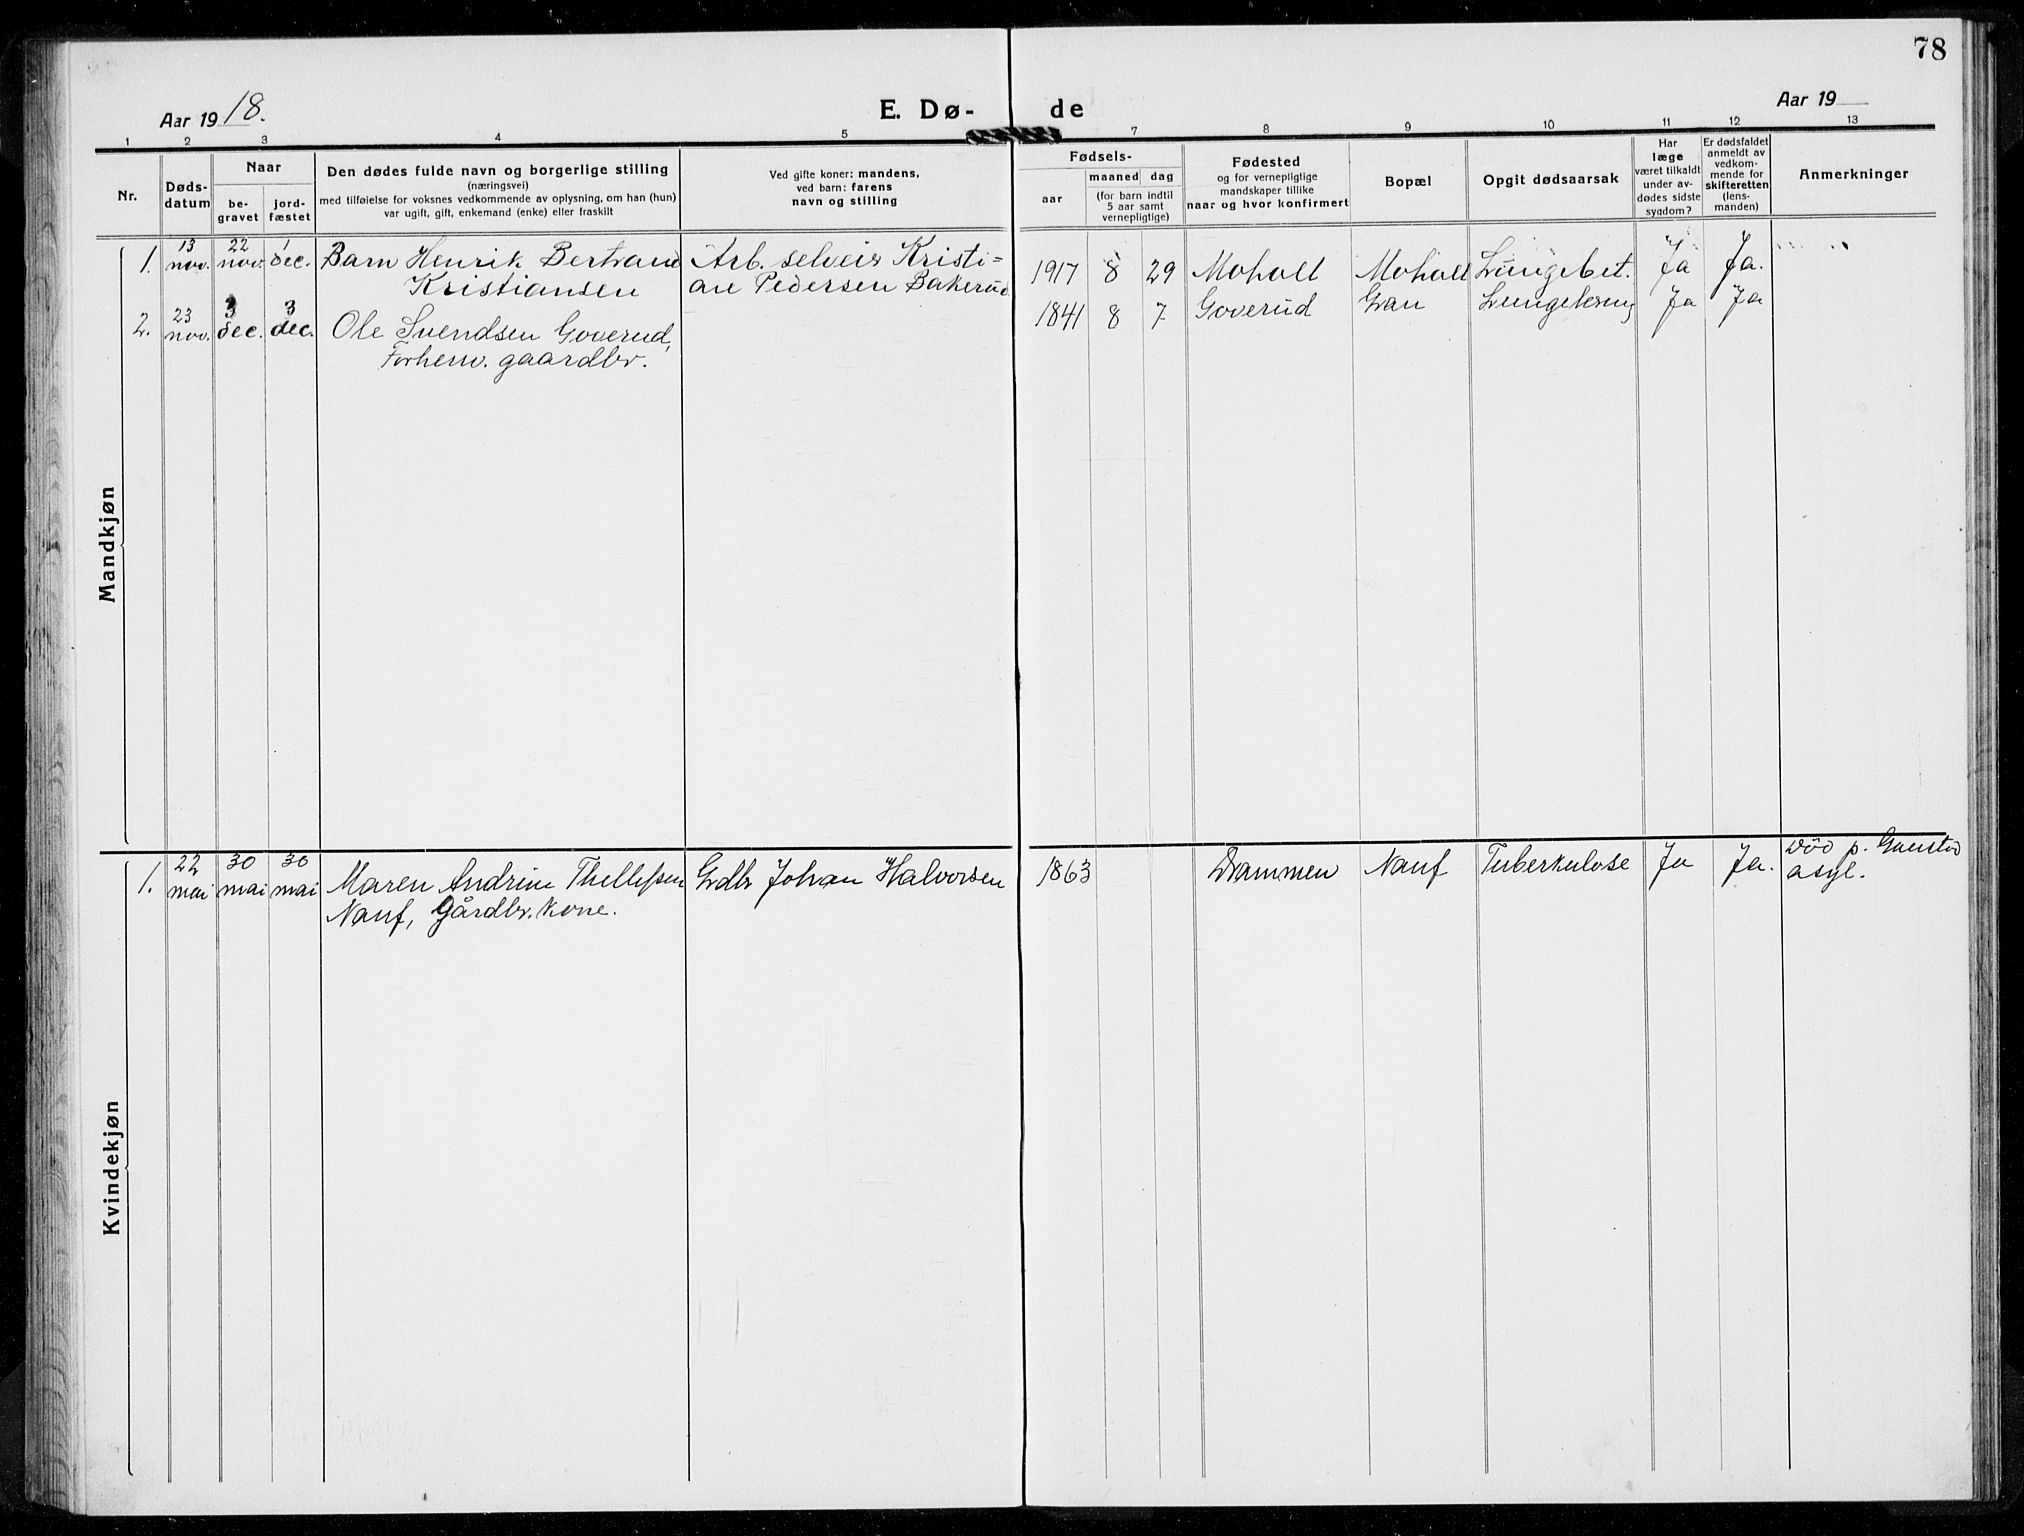 78
Aar 1918.
E. Dø-de
Aar 19
1 2 3 4 5 7 8 9 10 11 12 13
Nr.
Døds-
datum
Naar
be-
gravet
jord-
fæstet
Den dødes fulde navn og borgerlige stilling
(næringsvei)
med tilføielse for voksnes vedkommende av oplysning, om han (hun)
var ugift, gift, enkemand (enke) eller fraskilt
Ved gifte koner: mandens,
ved barn: farens
navn og stilling
Fødsels-
aar
maaned dag
(for barn indtil
5 aar samt
vernepligtige)
Fødested
og for vernepligtige
mandskaper tillike
naar og hvor konfirmert
Bopæl
Opgit dødsaarsak
Har
læge
været tilkaldt
under av-
dødes sidste
sygdom?
Er dødsfaldet
anmeldt av
vedkom-
mende for
skifteretten
(lens-
manden)
Anmerkninger
Mandkjøn
1. 13 nov. 22 nov. 1 dec. Barn Henrik Bertrand Arb. selveier Kristi= 1917 8 29 Moholt Moholt Lungebet. Ja Ja.
Kristiansen ane Pedersen Bakerud
2. 23 nov. 3 dec. 3 dec. Ole Svendsen Goverud, 1841 8 7 Goverud Gran Ja Ja
Forhenv. gaardbr.
Kvindekjøn
1. 22 mai 30 mai 30 mai Maren Andrine Thellefsen Grdbr Johan Halvorsen 1863 Drammen Nauf Tuberkulose Ja Ja. Död p. Gaustad
Nauf, Gårdbr. kone. asyl.